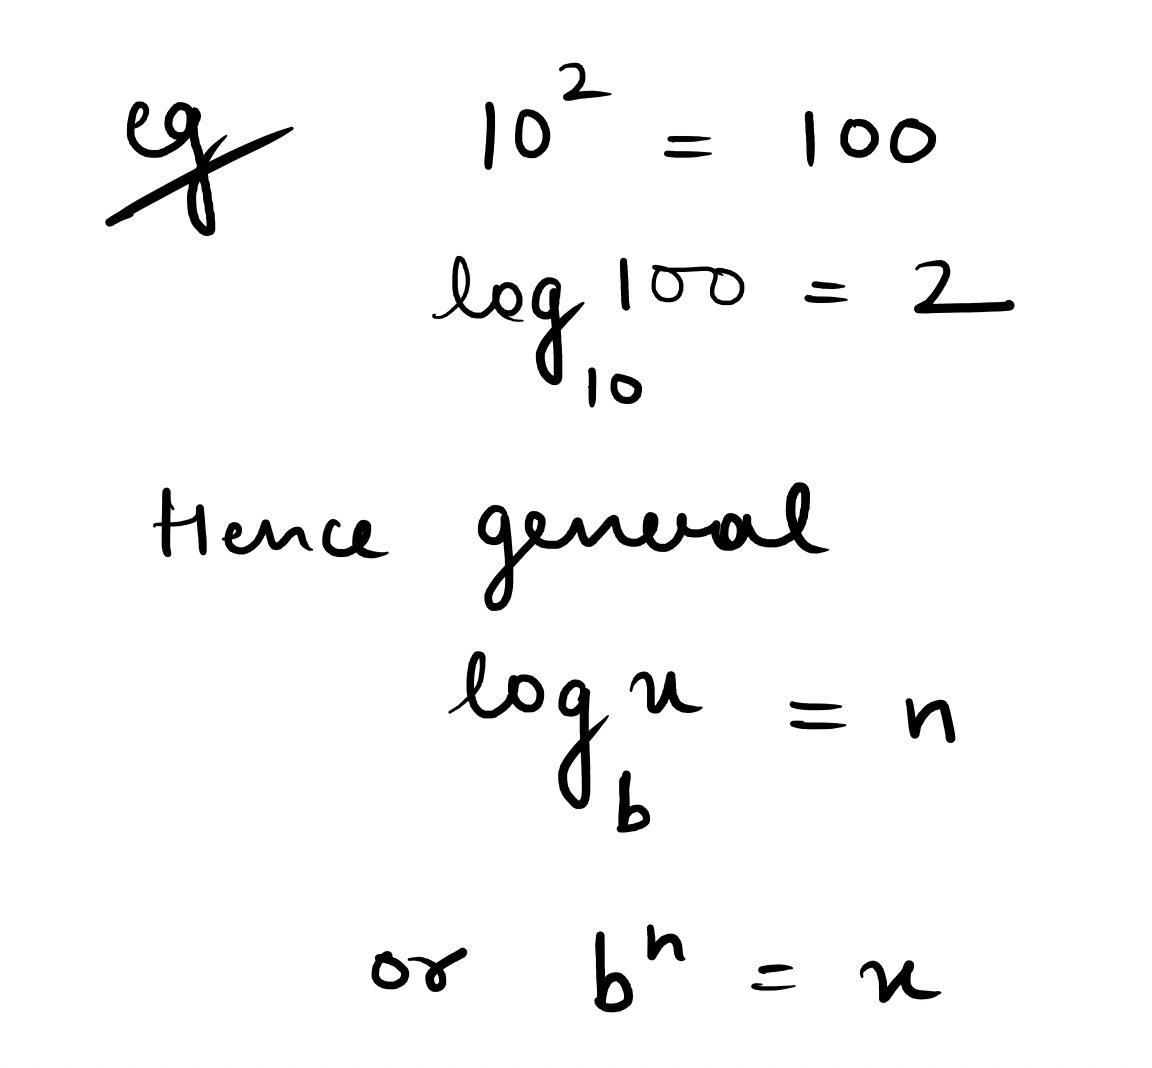 eg 10² = 100
log₁₀ 100 = 2
Hence general
log_b x = n
or bⁿ = x